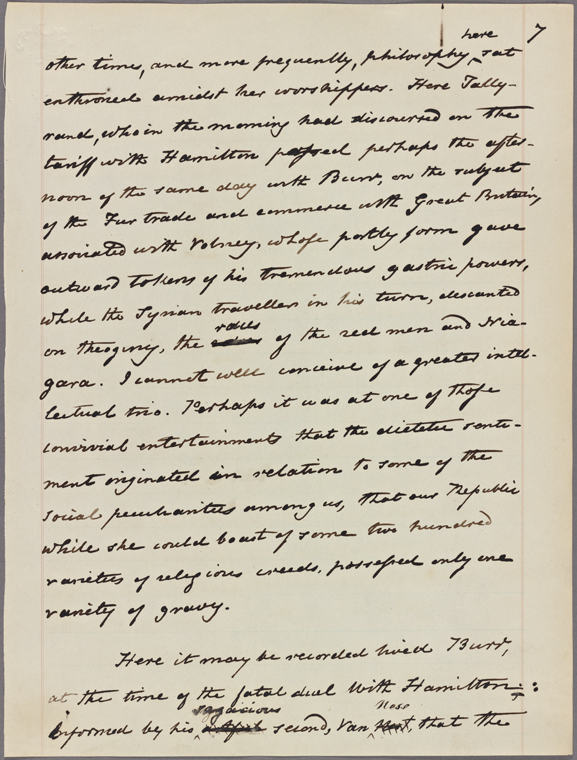 7
here
other times, and more frequently, philosophy ^ sat
enthroned amidst her worshippers. Here Tally-
rand, who in the morning had discoursed on the
tariff with Hamilton passed perhaps the after-
noon of the same day with Burr, on the subject
of the Fur trade and commerce with Great Britain,
associated with Volney, whose portly form gave
outward tokens of his tremendous gastric powers,
while the Syrian traveller in his turn, descanted
races
on theogony, the of the red men and Nia-
gara. I cannot well conceive of a greater intel-
lectual trio. Perhaps it was at one of those
convivial entertainments that the dietetic senti-
ment originated in relation to some of the
social peculiarities among us, that our Republic
while she could boast of some two hundred
varieties of religious creeds, possessed only one
variety of gravy.
Here it may be recorded lived Burr,
at the time of the fatal duel with Hamilton:
sagacious Ness
Informed by his second, Van, that the